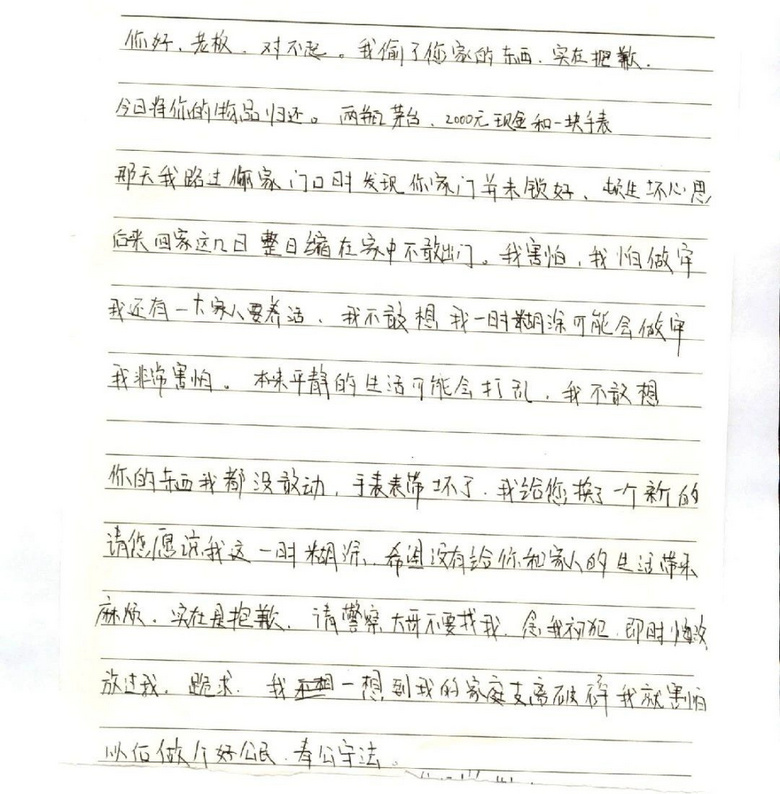 你好、老板、对不起。我偷了你家的东西、实在抱歉.
今日将你的物品归还。两瓶茅台、2000元现金和一块手表
那天我路过你家门口时发现你家门并未锁好、顿生坏心思
后来回家这几日整日缩在家中不敢出门。我害怕,我怕做牢
我还有一大家人要养活、我不敢想我一时糊涂可能会做牢
我非常害怕。本来平静的生活可能会打乱,我不敢想
你的东西我都没敢动,手表表带坏了.我给您换了一个新的
请您原谅我这一时糊涂.希望没有给你和家人的生活带来
麻烦.实在是抱歉.请警察大哥不要找我.念我初犯.即时悔改
放过我.跪求.我一想到我的家庭支离破碎我就害怕
以后做个好公民.奉公守法。